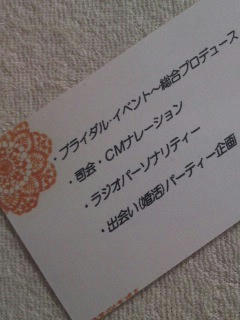 ・ブライダル・イベント～総合プロデュース
・司会・CMナレーション
・ラジオパーソナリティー
・出会い(婚活)パーティー企画